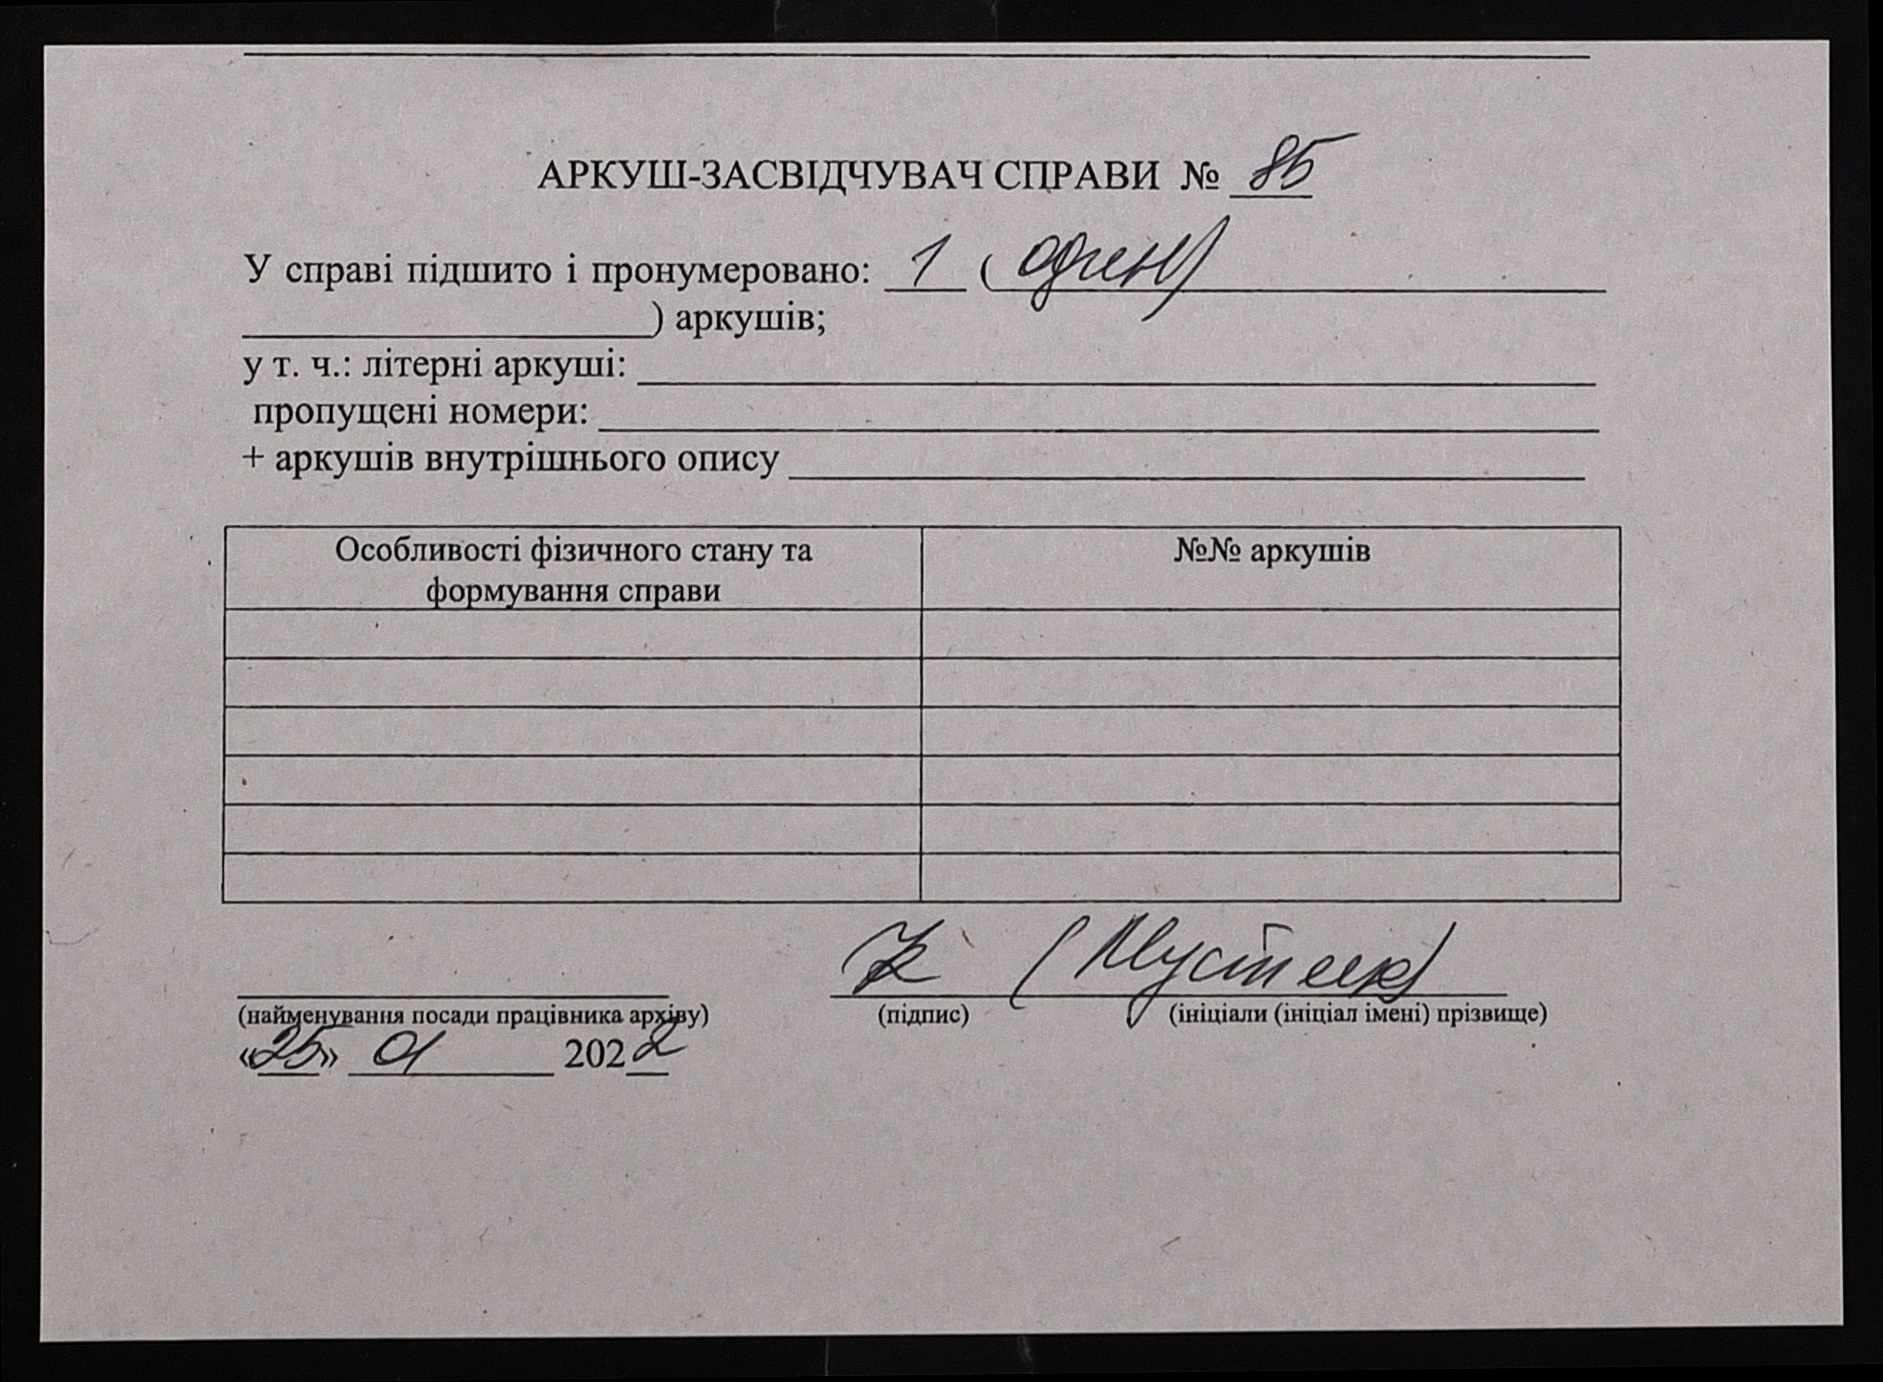 АРКУШ-ЗАСВІДЧУВАЧ СПРАВИ № 85
У справі підшито і пронумеровано: 1 ( один)
) аркушів;
у т. ч.: літерні аркуші:
пропущені номери:
+ аркушів внутрішнього опису
Особливості фізичного стану та формування справи
№№ аркушів
(найменування посади працівника архіву) (підпис) (ініціали (ініціал імені) прізвище)
«25» 01 2022